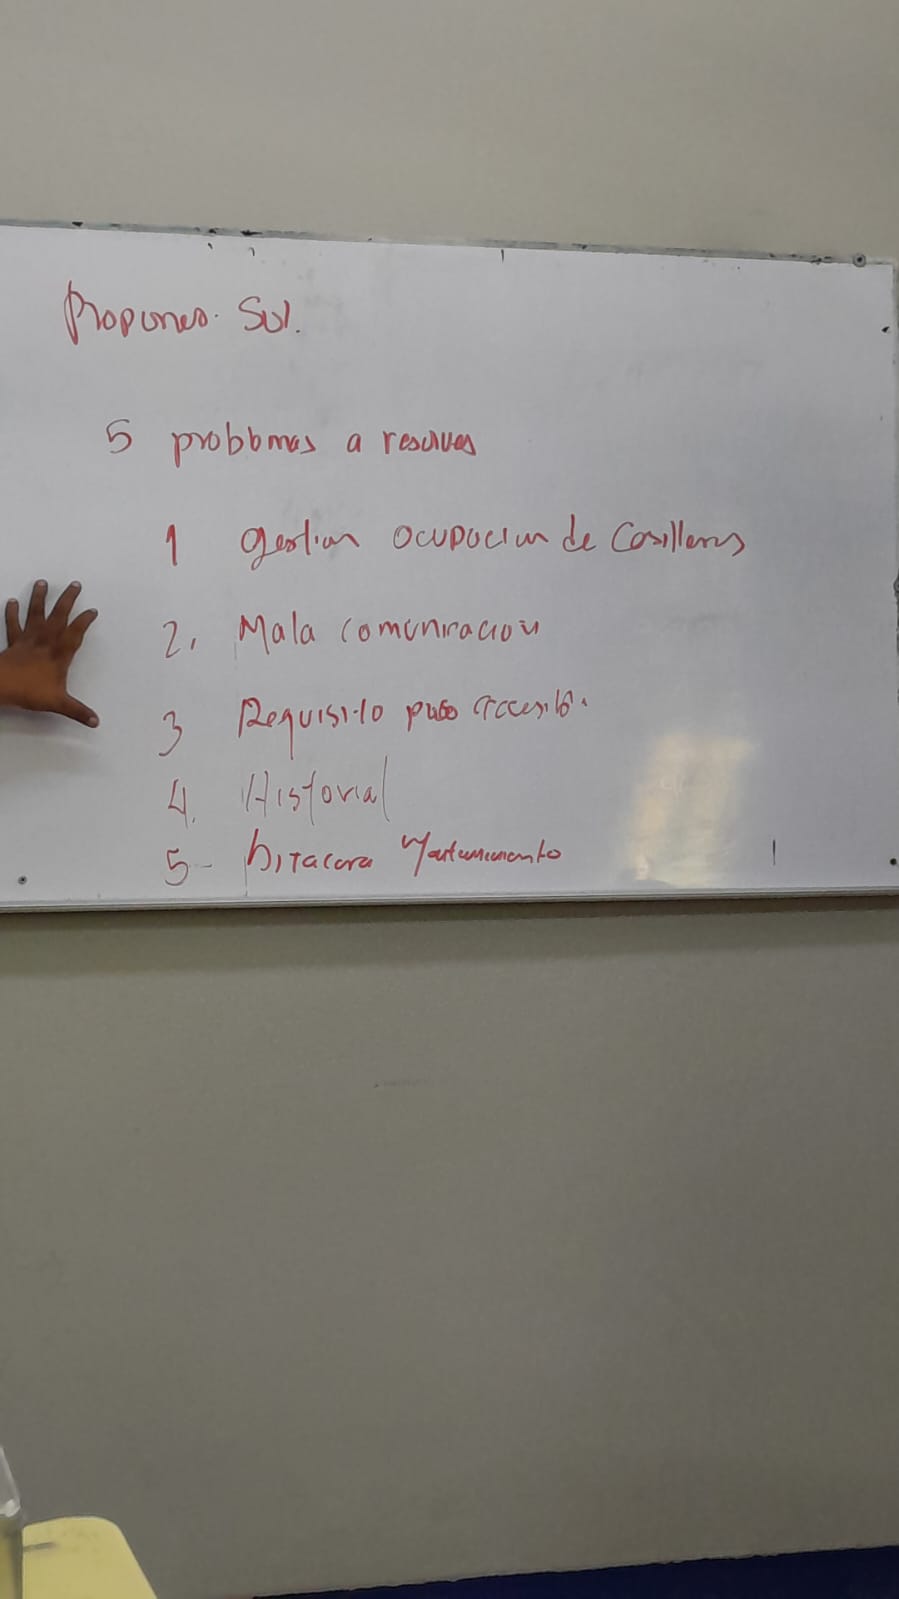 Propuneo. Sol.
5 problemas a resolver
1 gestion ocupacion de Casilleros
2. Mala comunicacion
3 Requisito poco accesib.
4. Historial
5- bitacora Mantenimiento